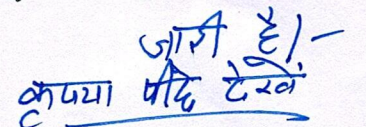 जारी है।-
कृपया पीछे देखें